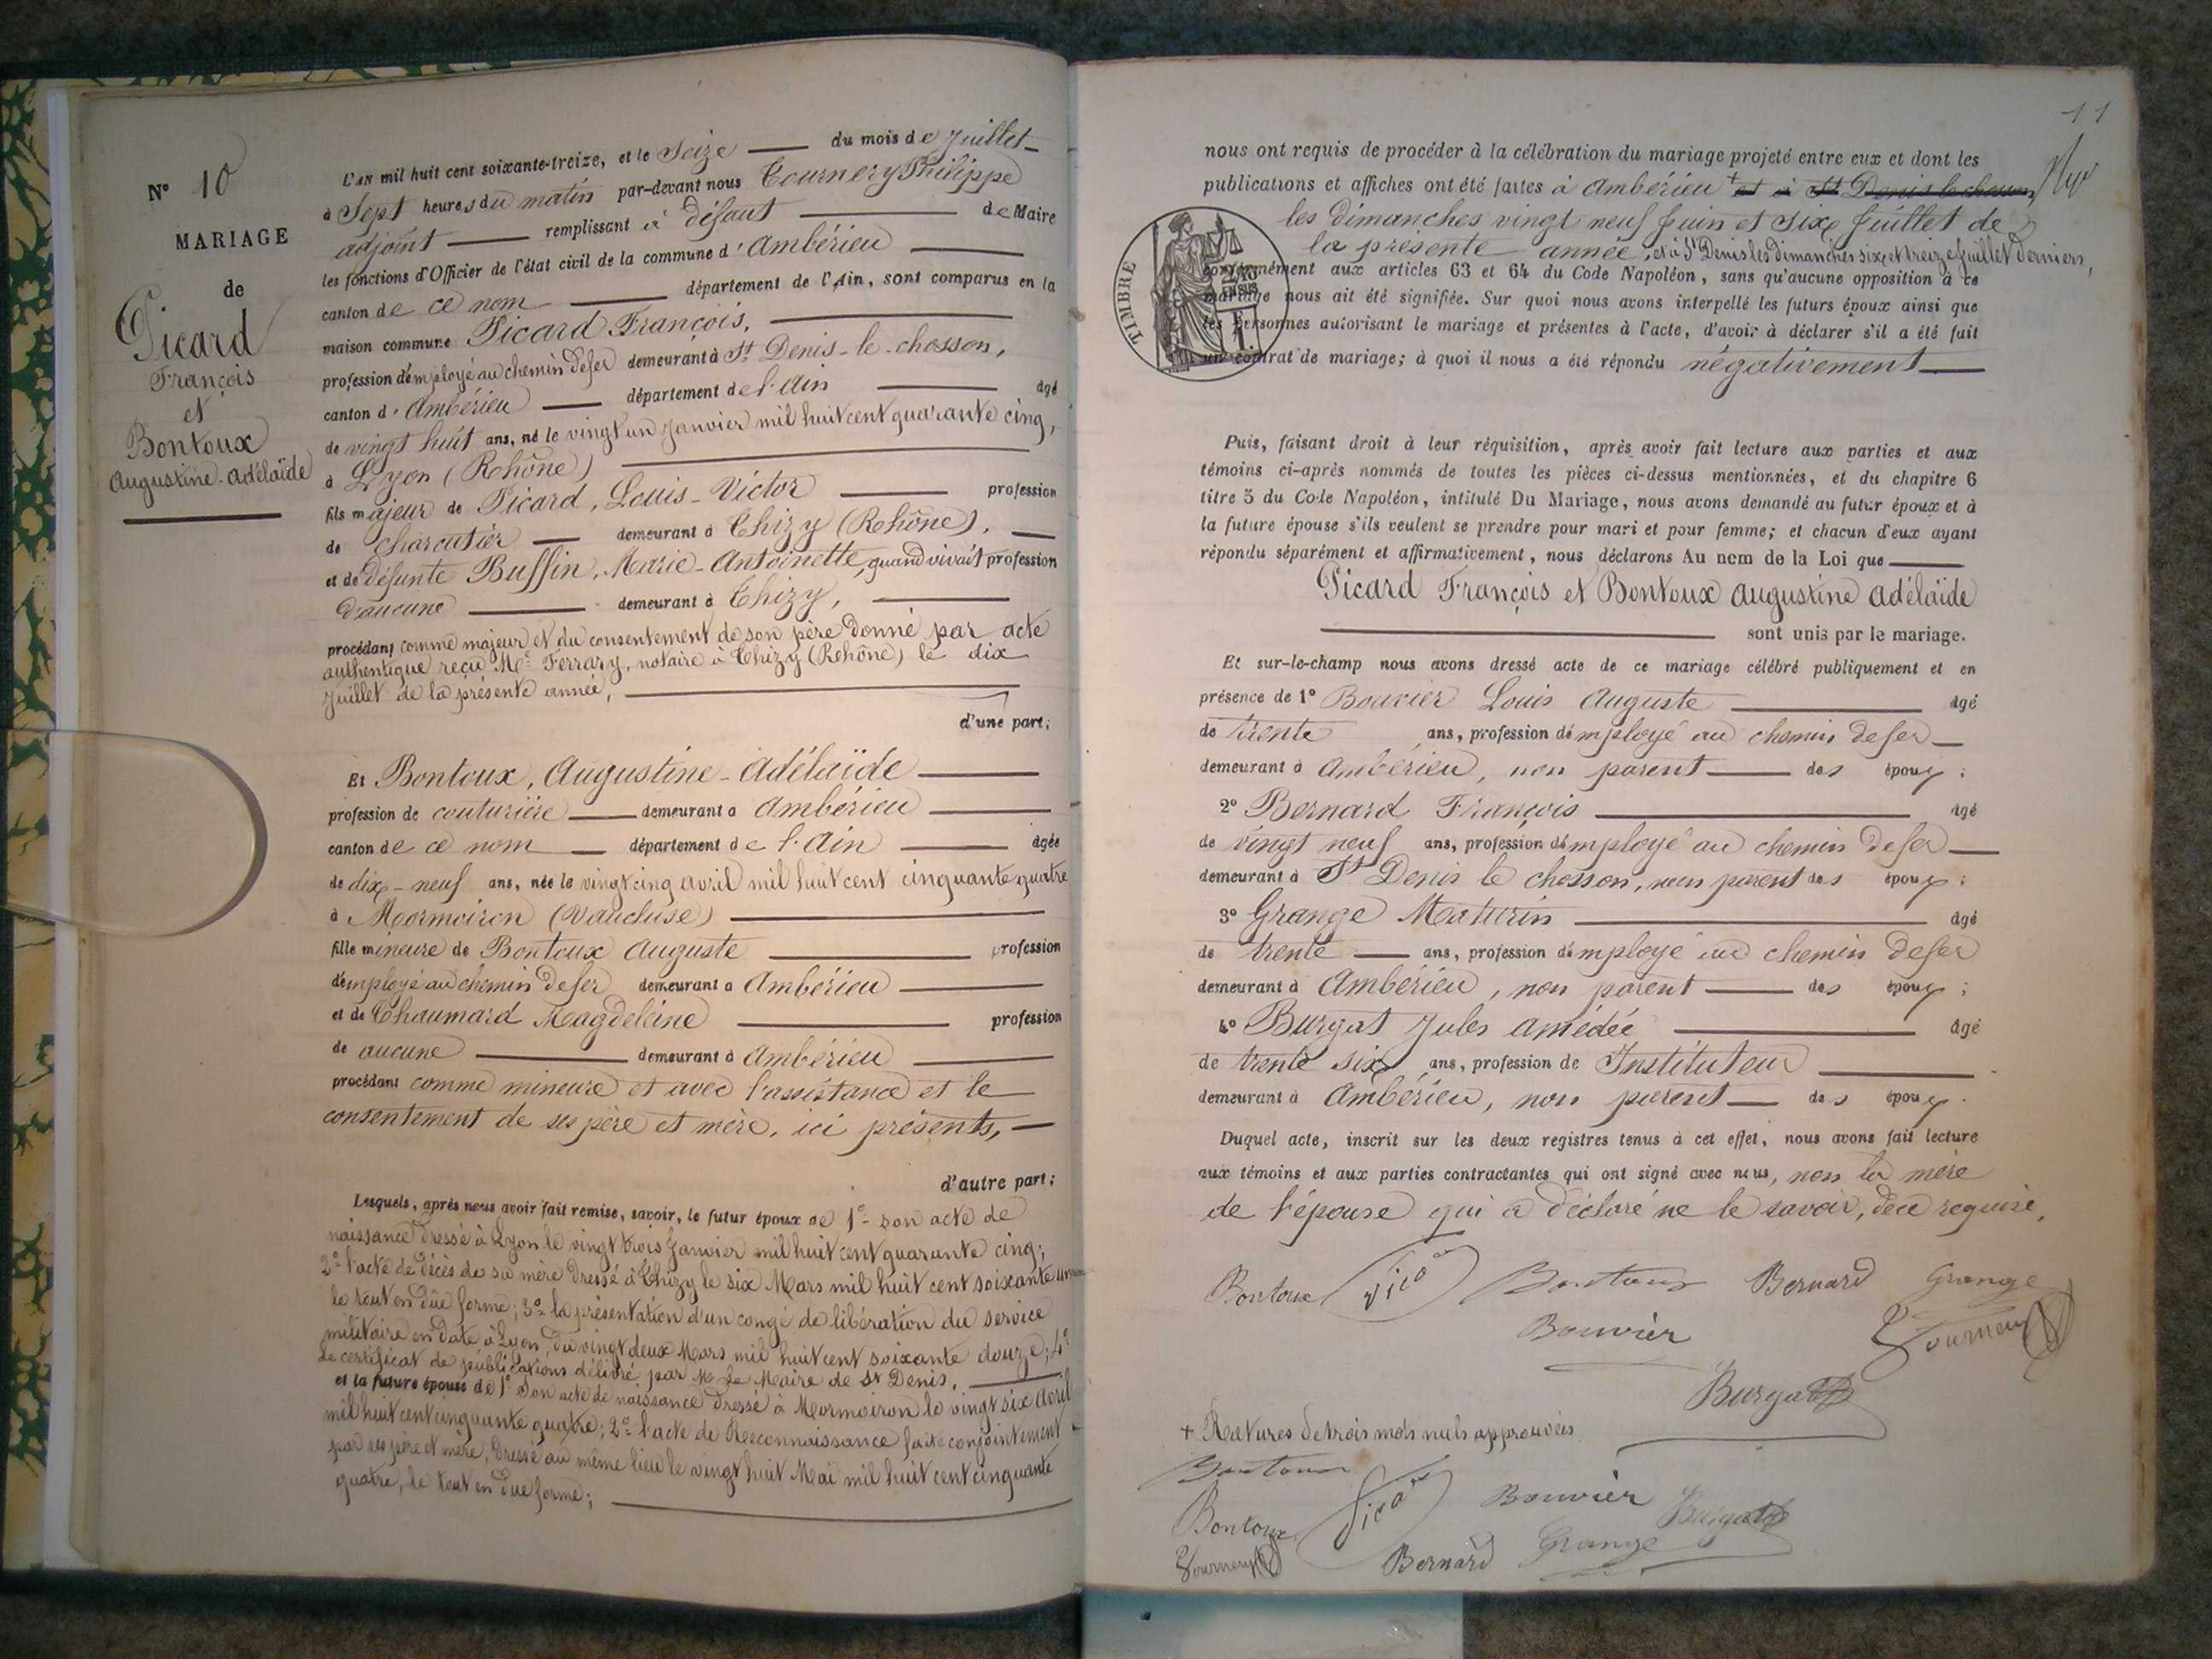 N° 10
MARIAGE
de
Picard
François
et
Bontoux
Augustine-Adélaïde
L'AN mil huit cent soixante-treize, et le Seize du mois de Juillet
à Sept heures du matin par-devant nous Tournery Philippe
adjoint remplissant à défaut de Maire
les fonctions d'Officier de l'état civil de la commune d'Ambérieu
canton de ce nom département de l'Ain, sont comparus en la
maison commune Picard François,
profession d'employé au chemin de fer demeurant à St Denis-le-chosson,
canton d'Ambérieu département de l'Ain âgé
de vingt huit ans, né le vingt un Janvier mil huit cent quarante cinq,
à Lyon (Rhône)
fils majeur de Picard, Louis-Victor profession
de charcutier demeurant à Thizy (Rhône),
et de défunte Buffin, Marie-Antoinette, quand vivait profession
d'aucune demeurant à Thizy,
procédant comme majeur et du consentement de son père donné par acte
authentique reçu Me Ferrary, notaire à Thizy (Rhône) le dix
Juillet de la présente année,
d'une part;
Et Bontoux, Augustine-Adélaïde
profession de couturière demeurant à Ambérieu
canton de ce nom département de l'Ain âgée
de dix-neuf ans, née le vingt cinq avril mil huit cent cinquante quatre
à Mormoiron (Vaucluse)
fille mineure de Bontoux Auguste profession
d'employé au chemin de fer demeurant à Ambérieu
et de Chaumard Magdeleine profession
de aucune demeurant à Ambérieu
procédant comme mineure et avec l'assistance et le
consentement de ses père et mère, ici présents,
d'autre part;
Lesquels, après nous avoir fait remise, savoir, le futur époux de 1° son acte de
naissance dressé à Lyon le vingt trois Janvier mil huit cent quarante cinq;
2° l'acte de décès de sa mère dressé à Thizy le six Mars mil huit cent soixante un
le tout en dûe forme; 3° la présentation d'un congé de libération du service
militaire en date à Lyon, du vingt deux Mars mil huit cent soixante douze; 4°
Le certificat de publications délivré par Mr le Maire de St Denis,
et la future épouse de 1° son acte de naissance dressé à Mormoiron le vingt six avril
mil huit cent cinquante quatre; 2° l'acte de Reconnaissance faite conjointement
par ses père et mère, dressé au même lieu le vingt huit Mai mil huit cent cinquante
quatre, le tout en due forme;
11
nous ont requis de procéder à la célébration du mariage projeté entre eux et dont les
publications et affiches ont été faites à Ambérieu + et à St Denis le chosson,
les dimanches vingt neuf Juin et six Juillet de
la présente année, et à St Denis les dimanches six et treize Juillet derniers,
conformément aux articles 63 et 64 du Code Napoléon, sans qu'aucune opposition à ce
mariage nous ait été signifiée. Sur quoi nous avons interpellé les futurs époux ainsi que
les personnes autorisant le mariage et présentes à l'acte, d'avoir à déclarer s'il a été fait
un contrat de mariage; à quoi il nous a été répondu négativement
TIMBRE
Puis, faisant droit à leur réquisition, après avoir fait lecture aux parties et aux
témoins ci-après nommés de toutes les pièces ci-dessus mentionnées, et du chapitre 6
titre 5 du Code Napoléon, intitulé Du Mariage, nous avons demandé au futur époux et à
la future épouse s'ils veulent se prendre pour mari et pour femme; et chacun d'eux ayant
répondu séparément et affirmativement, nous déclarons Au nom de la Loi que
Picard François et Bontoux Augustine Adélaïde
sont unis par le mariage.
Et sur-le-champ nous avons dressé acte de ce mariage célébré publiquement et en
présence de 1° Bouvier Louis Auguste âgé
de trente ans, profession d'employé au chemin de fer
demeurant à Ambérieu, non parent des époux;
2° Bernard François âgé
de vingt neuf ans, profession d'employé au chemin de fer
demeurant à St Denis le chosson, non parent des époux;
3° Grange Maturin âgé
de trente ans, profession d'employé au chemin de fer
demeurant à Ambérieu, non parent des époux;
4° Burgat Jules Amédée âgé
de trente six ans, profession de Instituteur
demeurant à Ambérieu, non parent des époux.
Duquel acte, inscrit sur les deux registres tenus à cet effet, nous avons fait lecture
aux témoins et aux parties contractantes qui ont signé avec nous, non la mère
de l'épouse qui a déclaré ne le savoir, de ce requise,
Bontoux Picard Bontoux Bernard Grange
Bouvier Tournery
Burgat
+ Ratures de trois mots nuls approuvées
Bontoux
Bontoux Picard Bouvier Burgat
Tournery Bernard Grange